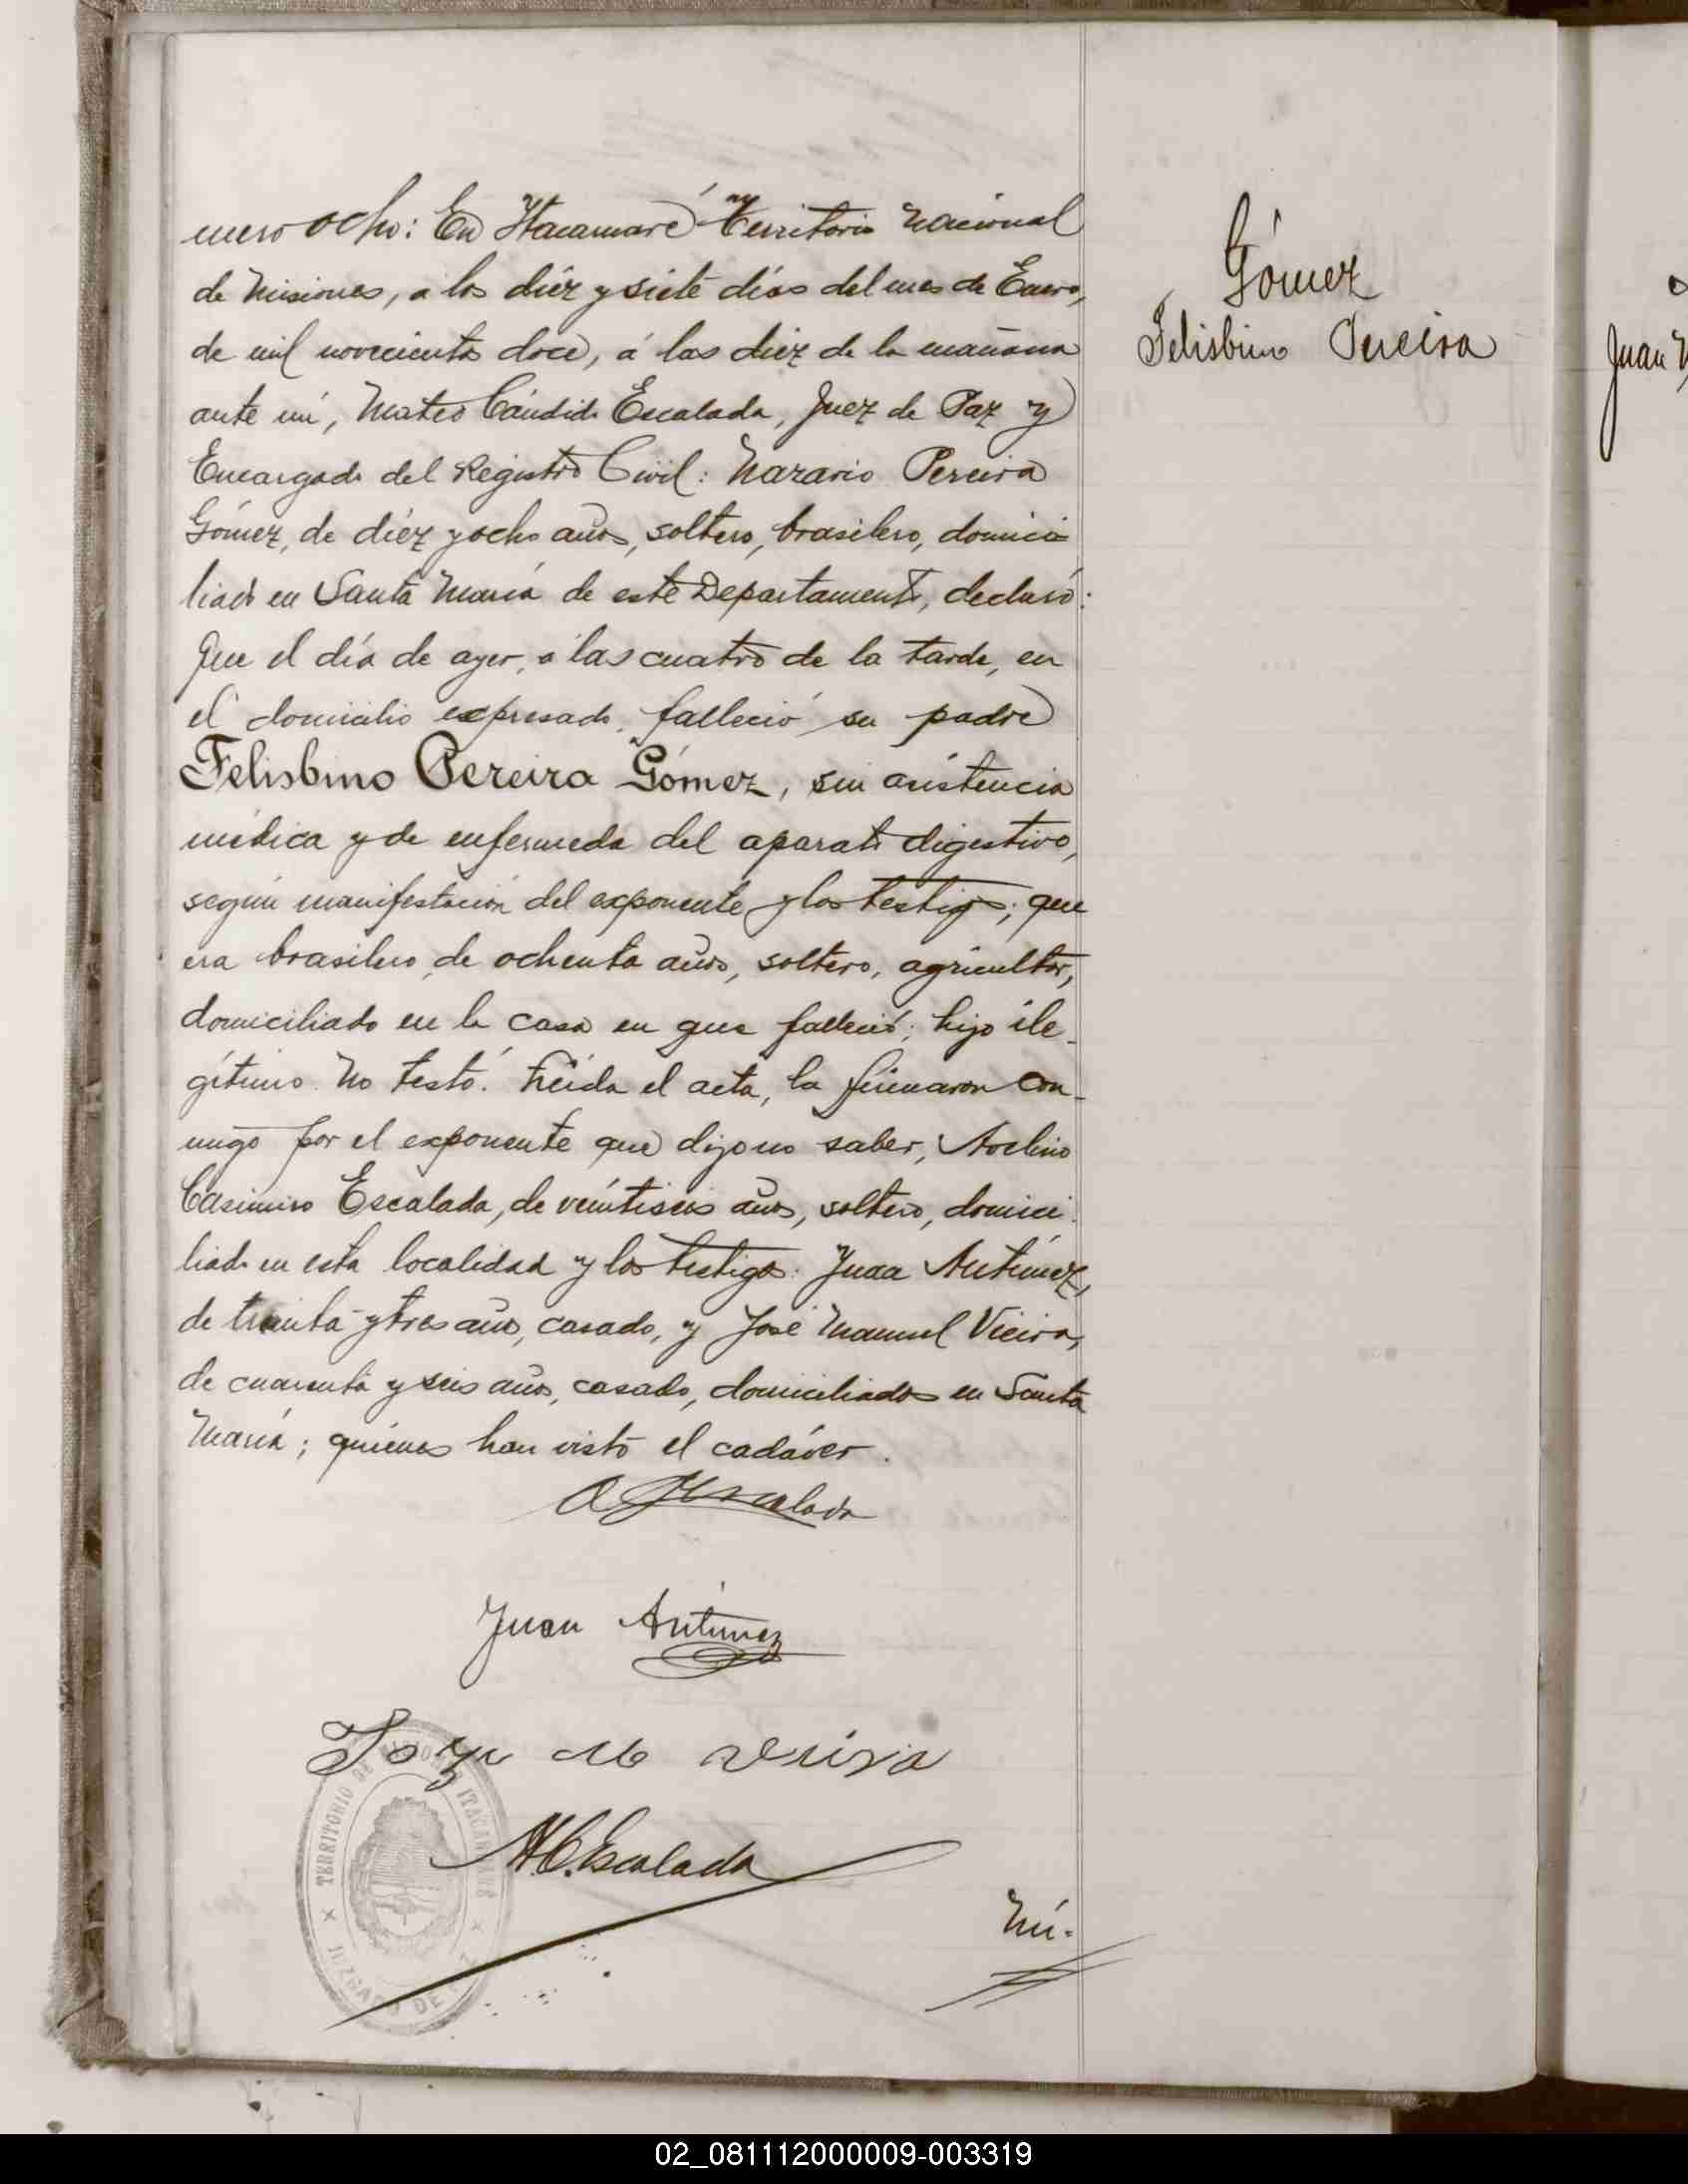 mero ocho: En Itacaruaré Territorio Nacional
de Misiones, a los diez y siete días del mes de Enero,
de mil novecientos doce, á las diez de la mañana
ante mí, Mateo Cándido Escalada, Juez de Paz y
Encargado del Registro Civil: Nazario Pereira
Gómez, de diéz y ocho años, soltero, brasilero, domici
liado en Santa María de este Departamento, declaró:
Que el día de ayer, a las cuatro de la tarde, en
el domicilio expresado, falleció su padre
Felisbino Pereira Gómez, sin asistencia
médica y de enfermeda del aparato digestivo,
según manifestación del exponente y los testigos; que
era brasilero, de ochenta años, soltero, agricultor,
domiciliado en la casa en que falleció; hijo ile-
gítimo. No testó. Leída el acta, la firmaron con-
migo por el exponente que dijo no saber, Avelino
Casimiro Escalada, de veintiseis años, soltero, domici-
liado en esta localidad y los testigos: Juan Antúnez,
de treinta y tres años, casado, y José Manuel Vieira,
de cuarenta y seis años, casado, domiciliados en Santa
María; quiénes han visto el cadáver.
A Escalada
Juan Antúnez
Joze M Vieira
M.C. Escalada
TERRITORIO DE MISIONES
JUZGADO DE
Nú-
Gómez
Felisbino Pereira
Juan
02_081112000009-003319